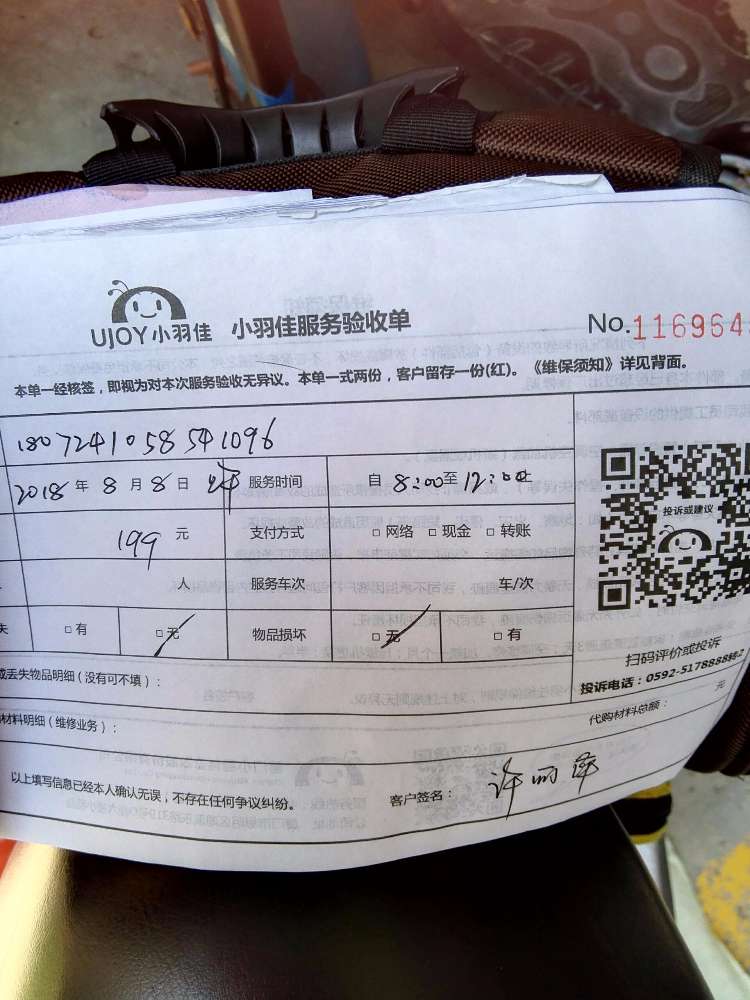 UJOY小羽佳 小羽佳服务验收单 No.116964
本单一经核签，即视为对本次服务验收无异议。本单一式两份，客户留存一份(红)。《维保须知》详见背面。
1807241058541096
2018年8月8日 服务时间 自8:00至12:00止
199元 支付方式 □网络 □现金 □转账
人 服务车次 车/次
失 □有 □无 物品损坏 □无 □有
投诉或建议
扫码评价或投诉
投诉电话：0592-5178888转2
或丢失物品明细（没有可不填）：
材料明细（维修业务）： 代购材料总额： 元
以上填写信息已经本人确认无误，不存在任何争议纠纷。 客户签名： 许丽萍